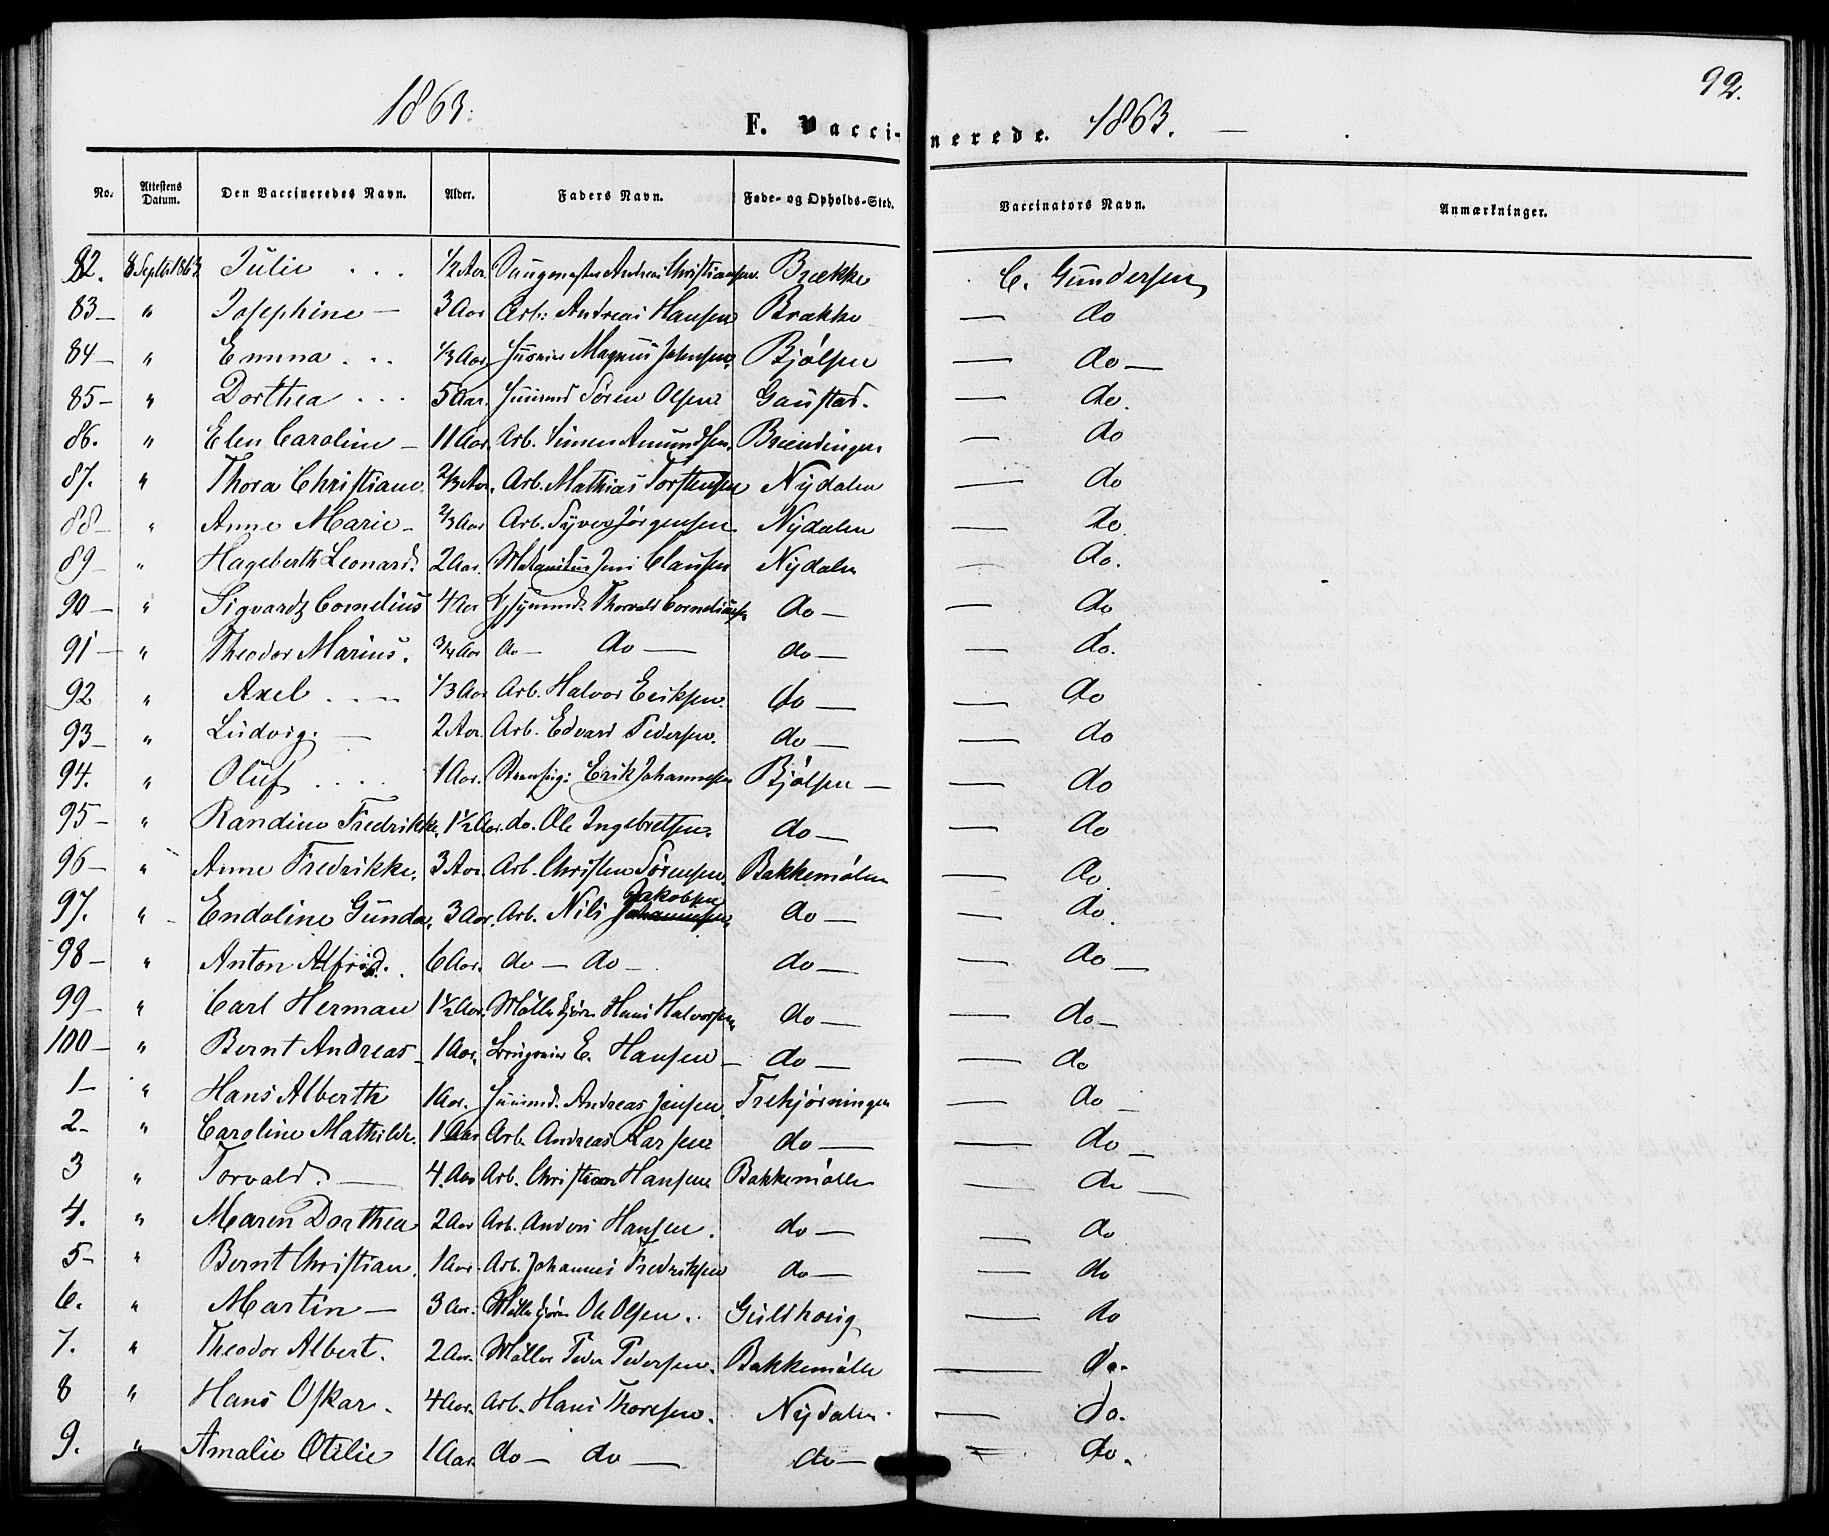 1863.
F. Vacci-
nerede. 1863. —
92.
No. Attestens Datum. Den Vaccineredes Navn. Alder. Faders Navn. Føde- og Opholds-Sted. Vaccinators Navn. Anmærkninger.
82. 8 Septbr 1863 Julie . . . 1/2 Aar Andreas Christiansen. Brække C. Gundersen
83— " Josephine — 3 Aar Arb: Andreas Hansen Brække — do
84— " Emma . . . 1/3 Aar. Magnus Johnsen. Bjølsen — do —
85— " Dorthea . . . 5 Aar. Huusmd Søren Olsen Gaustad. — do.
86. " Elen Caroline — 11 Aar. Arb. Simen Amundsen. — do
87. " Thora Christiane. 2/3 Aar. Arb. Mathias Torstensen Nydalen — do
88— " Anne Marie — 2/3 Aar Arb. Syver Jørgensen Nydalen — do
89— " Hageberth Leonard. 2 Aar. Jens Clausen Nydalen — do.
90— " Sigvardt Cornelius 4 Aar Thorvald Corneliusen do — — do
91— " Theodor Marius. 3/4 Aar do — do — do — — do.
92 " Axel . . — 1/3 Aar Arb. Halvor Eriksen. do — — do
93— " Ludvig. — 2 Aar. Arb. Edvard Pedersen. do — — do
94. " Oluf . . . 1 Aar. Erik Johannesen Bjølsen — — do
95— " Randine Fredrikke. 1 1/2 Aar. do. Ole Ingebretsen. do — — do
96— " Anne Fredrikke. 3 Aar. Arb. Christen Sørensen. Bakkemølen — do.
97. " Endoline Gunda. 3 Aar. Arb. Nils Jakobsen Johannesen do — — do.
98— " Anton Alfrid. 6 Aar. do — do — do — — do —
99— " Carl Herman 1 1/2 Aar. Hans Halvorsen do — — do —
100— " Bernt Andreas — 1 Aar. E. Hansen — do — — do
1— " Hans Alberth 1 Aar. Huusmd. Andreas Jensen. Trekjørningen — do —
2— " Caroline Mathilde. 1 Aar Arb. Andreas Larsen do — — do —
3 " Torvald. — 4. Aar Arb. Christian Hansen Bakkemølle — do —
4. " Maren Dorthea 2 Aar Arb. Anders Hansen. do — — do
5— " Bernt Christian. 1 Aar. Arb. Johannes Fredriksen do — — do
6. " Martin — 3 Aar. Ole Olsen. Guldhoug — do
7. " Theodor Albert. 2 Aar. Møller Peder Pedersen. Bakkemølle — do.
8 " Hans Oskar. 4 Aar. Arb. Hans Thoresen. Nydalen. — do.
9. " Amalie Otilie 1 Aar. do — do — do — — do.